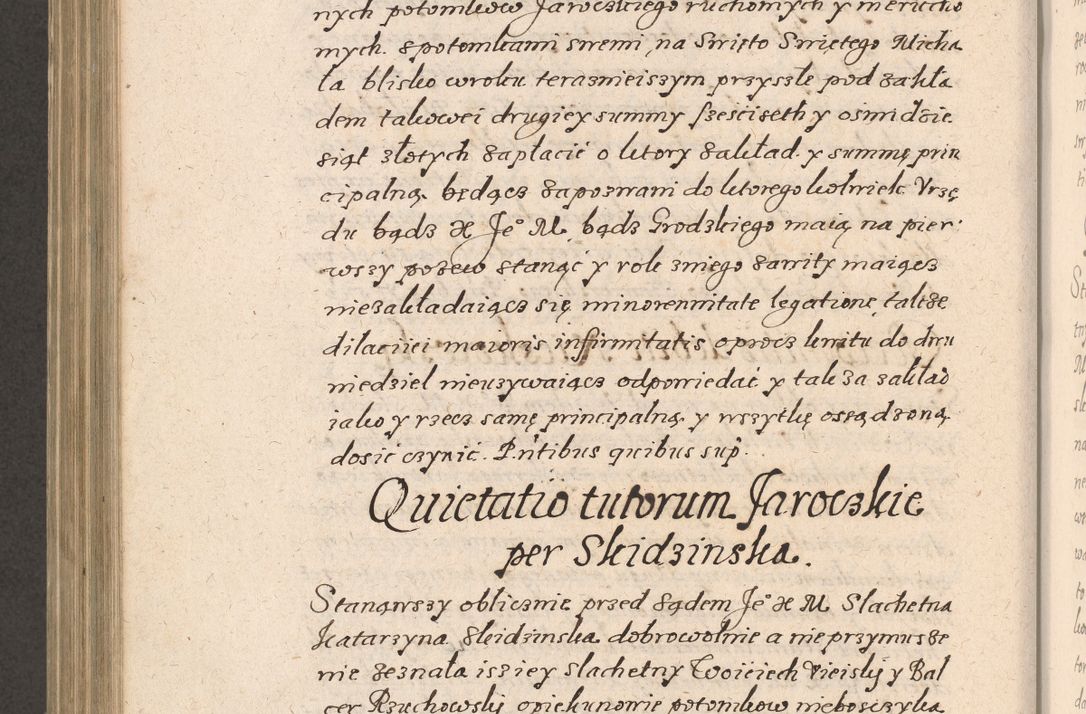 nych potomkow Jaroczkiego ruchomych y nierucho
mych. z potomkami swemi, na Swięto Swiętego Micha
ła blisko w roku teraznieiszym przyszłe pod zakła
dem takowei drugiey summy sześciseth y osmidzie
siąt złotych zapłacić o ktory zakład y summę prin
cipalną będącz zapozwani do ktoregokolwiek Vrzę
du bądz X Je° M. bądz Grodzkiego maią na pier
wszy pozew stanąć y rok zniego zawity maiącz
niezakładaiącz się minorennitate legatione także
dilaciiei maioris infirmitatis oprocz kwitu do dwu
niedziel nieuzywaiącz odpowiedać y tak za zakład
iako y rzecz samę principalną y wszytkę osządzoną
dosić czynić. P.ntibus quibus sup.
Quietatio tutorum Jaroczkie
per Skidzinska.
Stanąwszy oblicznie przed sądem Je° X M Slachetna
Katarzyna Skidzinska dobrowolnie a nie przymusze
nie zeznała isz iey slachetny Woiciech Vieiskij y Bal
cer Rzuchowskij opiekunowie potomkow nieboszczyka